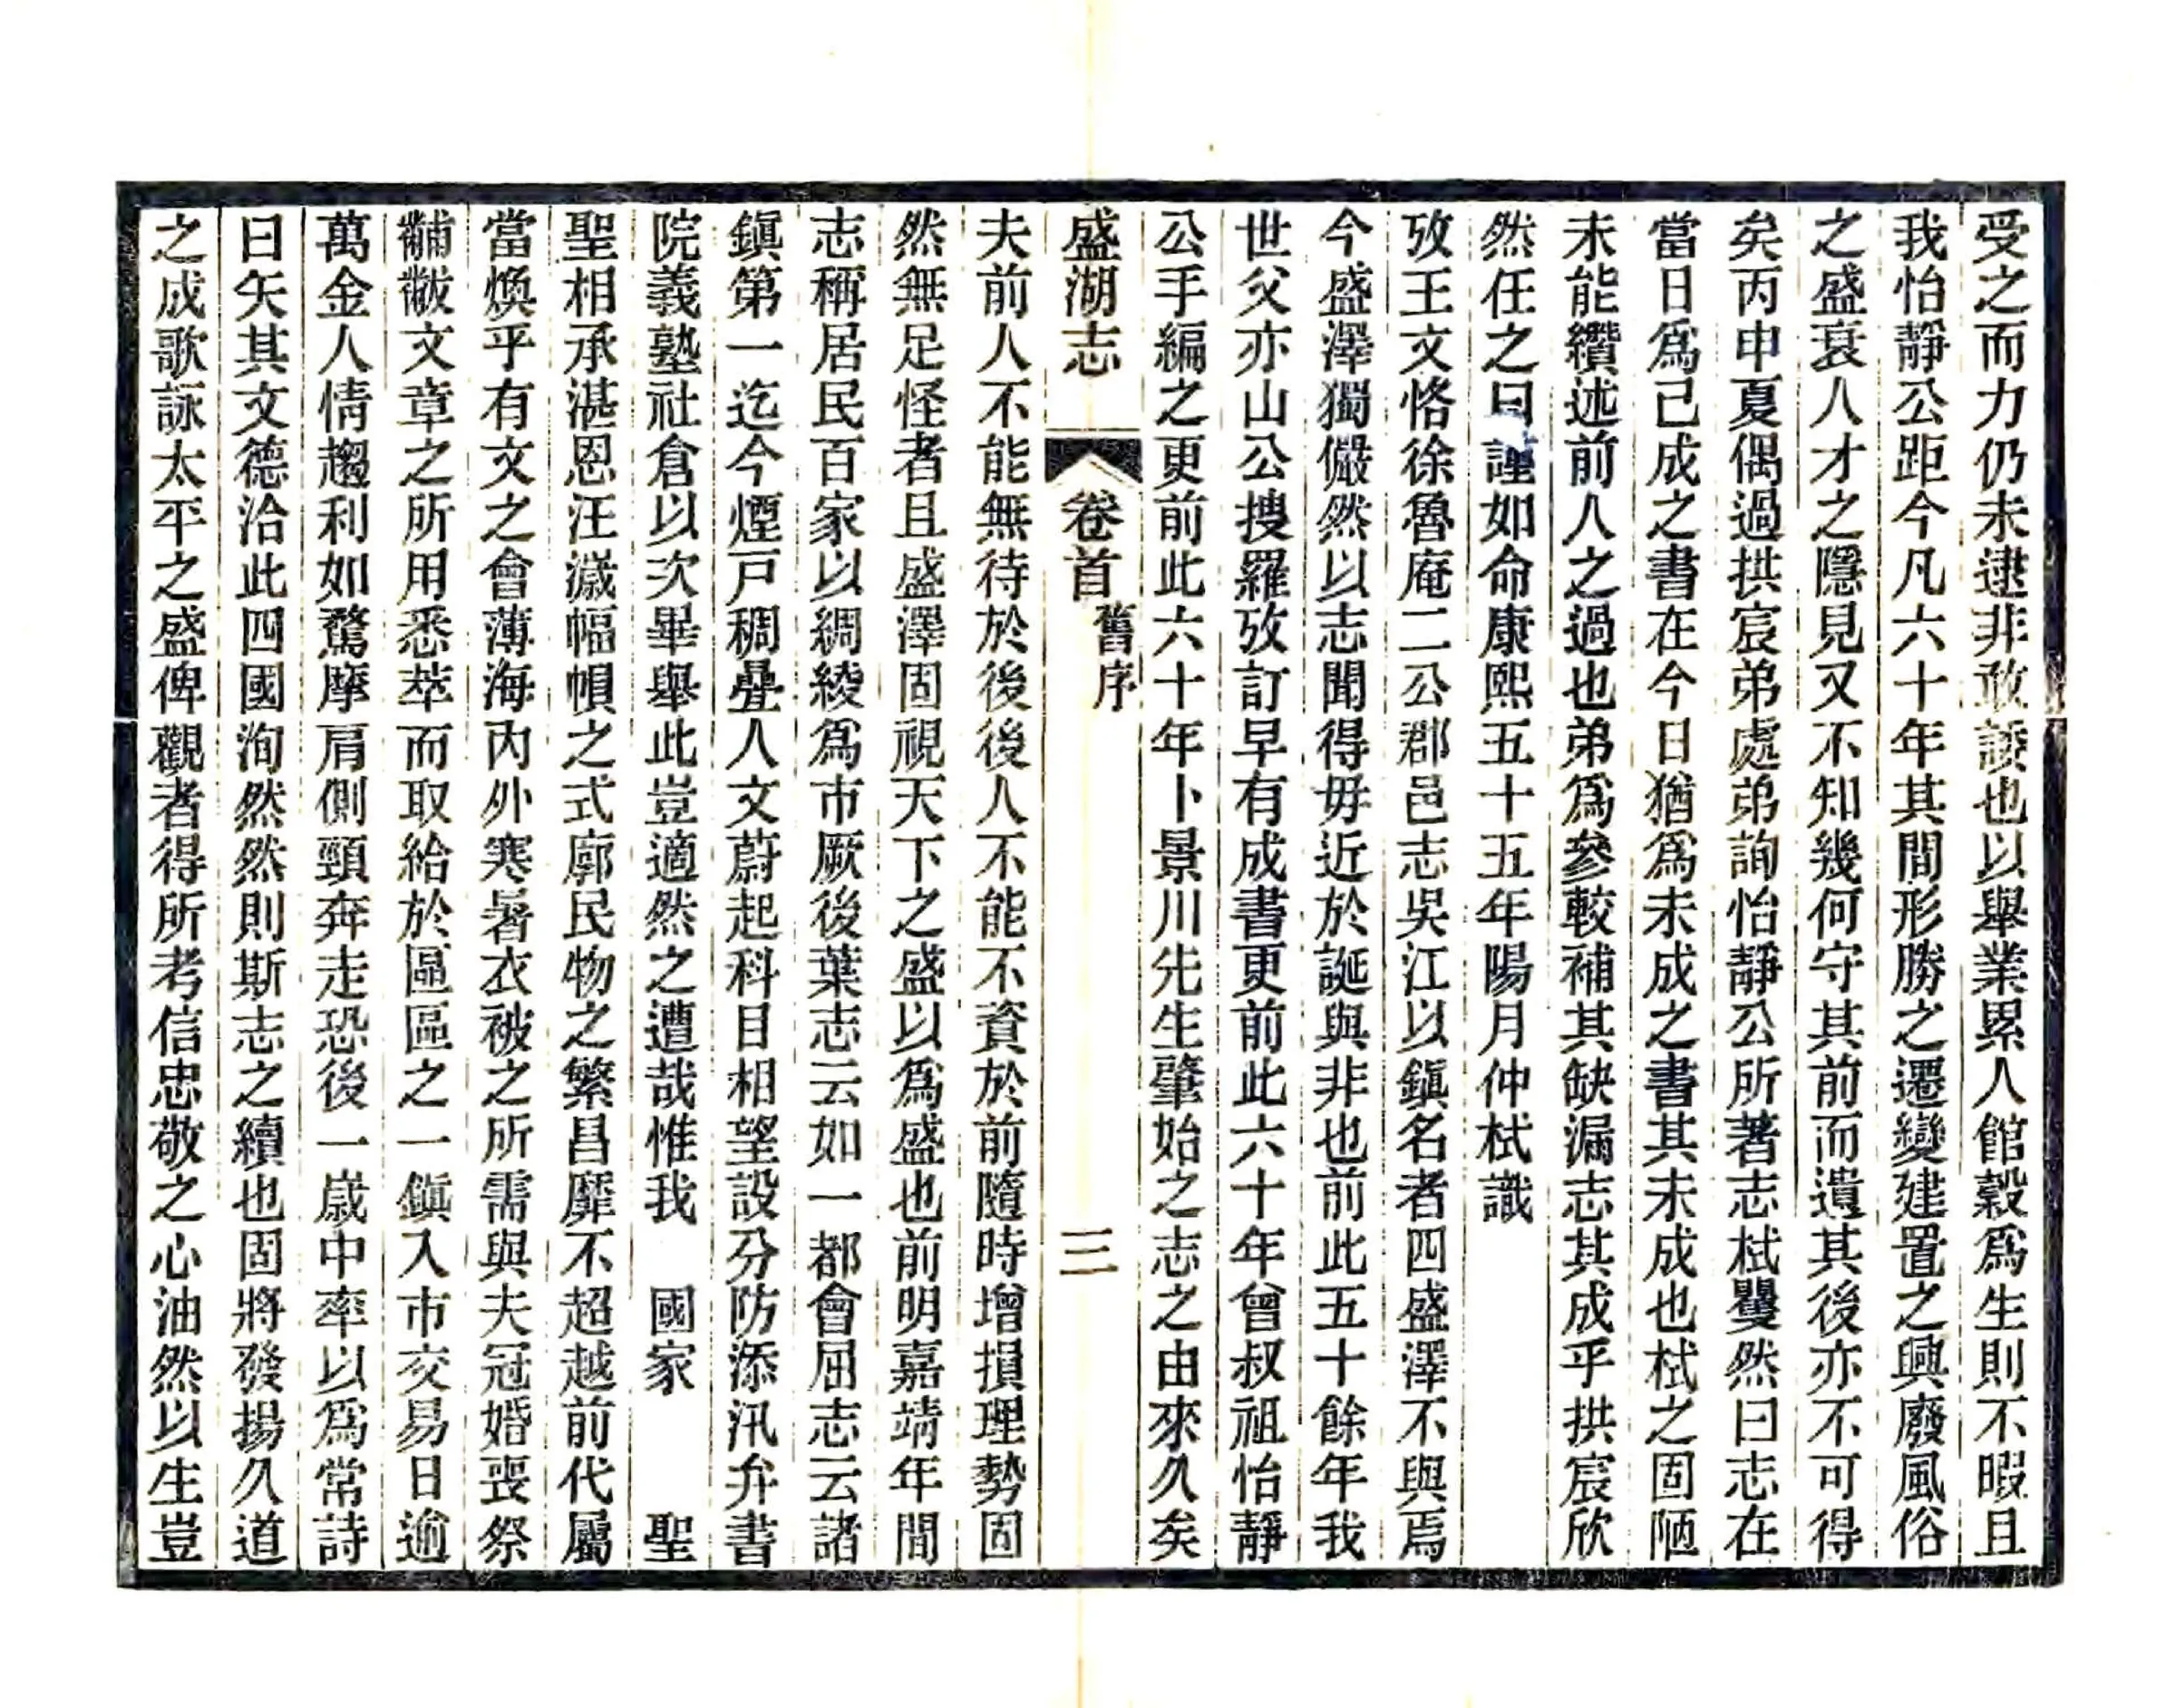 受之而力仍未逮非敢諉也以舉業累人館榖爲生則不暇且
我怡靜公距今凡六十年其間形勝之遷變建置之興廢風俗
之盛衰人才之隱見又不知幾何守其前而遺其後亦不可得
矣丙申夏偶過拱宸弟處弟詢怡靜公所著志栻矍然曰志在
當日爲已成之書在今日猶爲未成之書其未成也栻之固陋
未能纘述前人之過也弟爲參較補其缺漏志其成乎拱宸欣
然任之曰謹如命康熙五十五年陽月仲栻識
攷王文恪徐魯庵二公郡邑志吳江以鎭名者四盛澤不與焉
今盛澤獨儼然以志聞得毋近於誕與非也前此五十餘年我
世父亦山公搜羅攷訂早有成書更前此六十年曾叔祖怡靜
公手編之更前此六十年卜景川先生肇始之志之由來久矣
盛湖志 卷首 舊序 三
夫前人不能無待於後後人不能不資於前隨時增損理勢固
然無足怪者且盛澤固視天下之盛以爲盛也前明嘉靖年間
志稱居民百家以綢綾爲市厥後葉志云如一都會屈志云諸
鎭第一迄今煙戸稠疊人文蔚起科目相望設分防添汛弁書
院義塾社倉以次畢舉此豈適然之遭哉惟我 國家 聖
聖相承湛恩汪濊幅幀之式廓民物之繁昌靡不超越前代屬
當煥乎有文之會薄海內外寒暑衣被之所需與夫冠婚喪祭
黼黻文章之所用悉萃而取給於區區之一鎭入市交易日逾
萬金人情趨利如騖摩肩側頸奔走恐後一歲中率以爲常詩
曰矢其文德洽此四國洵然然則斯志之續也固將發揚久道
之成歌詠太平之盛俾觀者得所考信忠敬之心油然以生豈